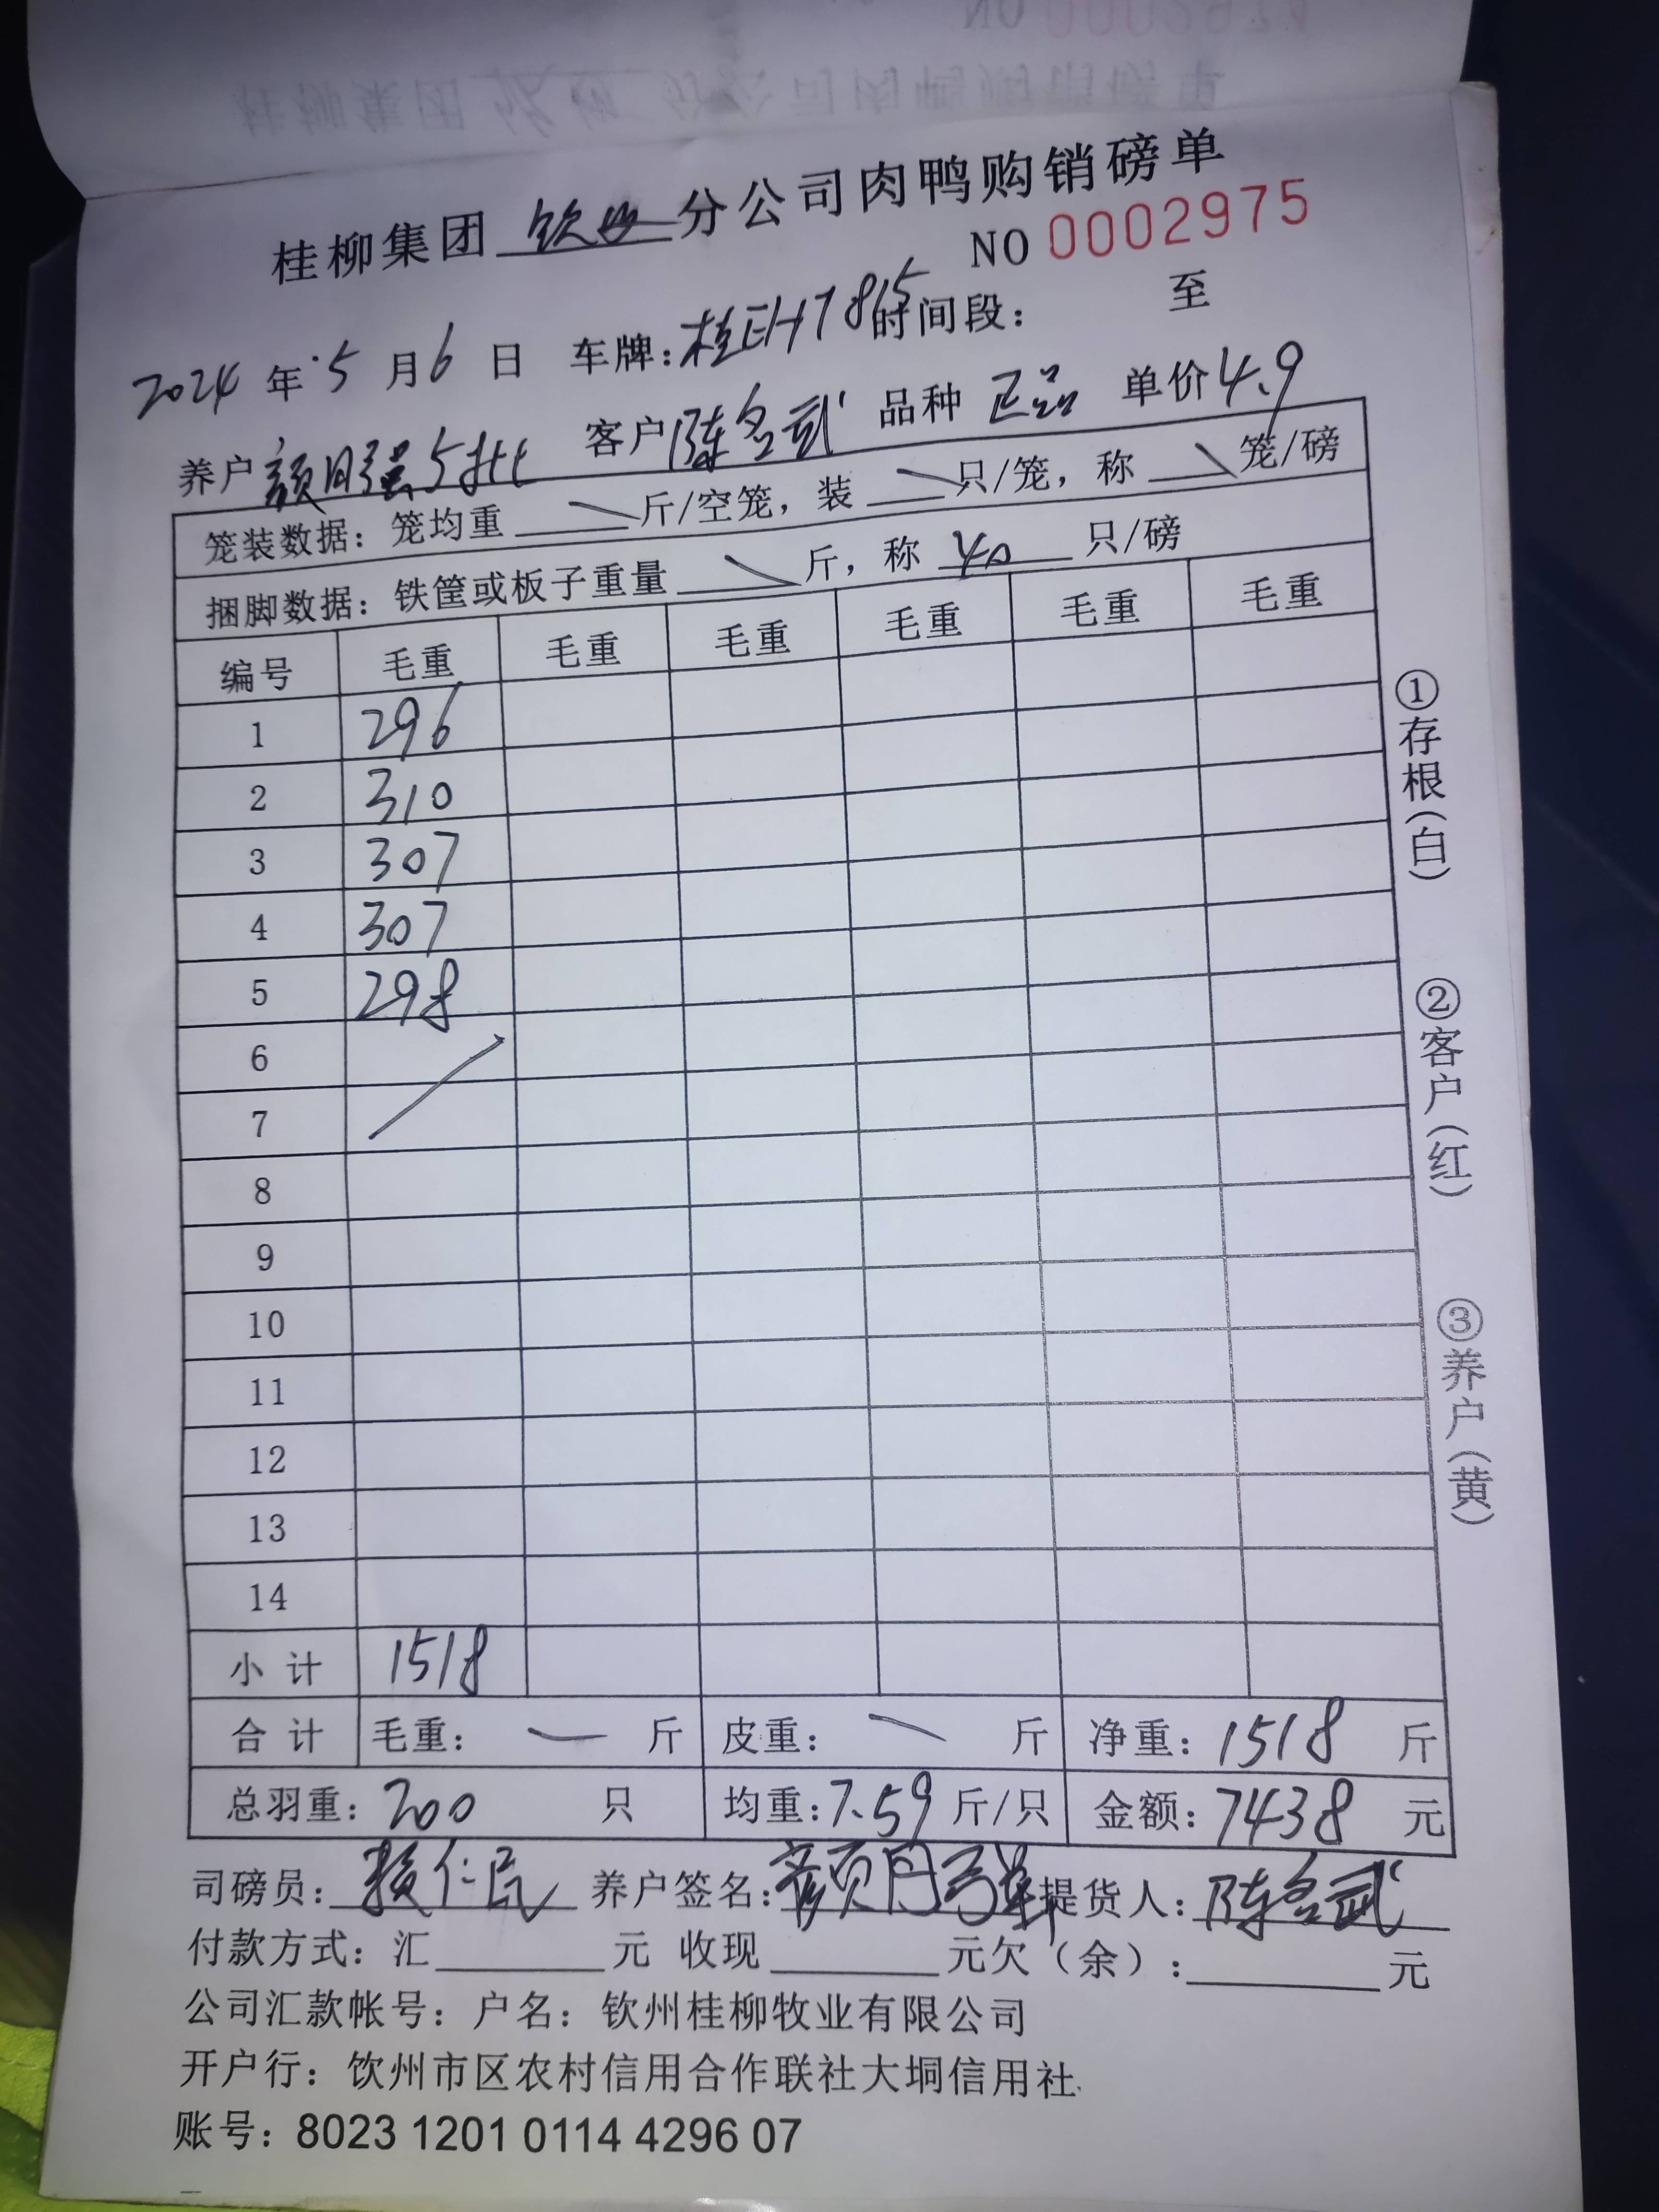 桂柳集团 钦州 分公司肉鸭购销磅单
NO 0002975
2024 年 5 月 6 日 车牌: 桂EH7815 时间段: 至
养户 颜月强5批 客户 陈名武 品种 正品 单价 4.9
笼装数据: 笼均重 斤/空笼, 装 只/笼, 称 笼/磅
捆脚数据: 铁筐或板子重量 斤, 称 40 只/磅
编号 毛重 毛重 毛重 毛重 毛重 毛重
1 296
2 310
3 307
4 307
5 298
6
7
8
9
10
11
12
13
14
小计 1518
合计 毛重: 斤 皮重: 斤 净重: 1518 斤
总羽重: 200 只 均重: 7.59 斤/只 金额: 7438 元
司磅员: 仁民 养户签名: 颜月强 提货人: 陈名武
付款方式: 汇 元 收现 元欠(余): 元
公司汇款帐号: 户名: 钦州桂柳牧业有限公司
开户行: 钦州市区农村信用合作联社大垌信用社
账号: 8023 1201 0114 4296 07
①存根(白)
②客户(红)
③养户(黄)